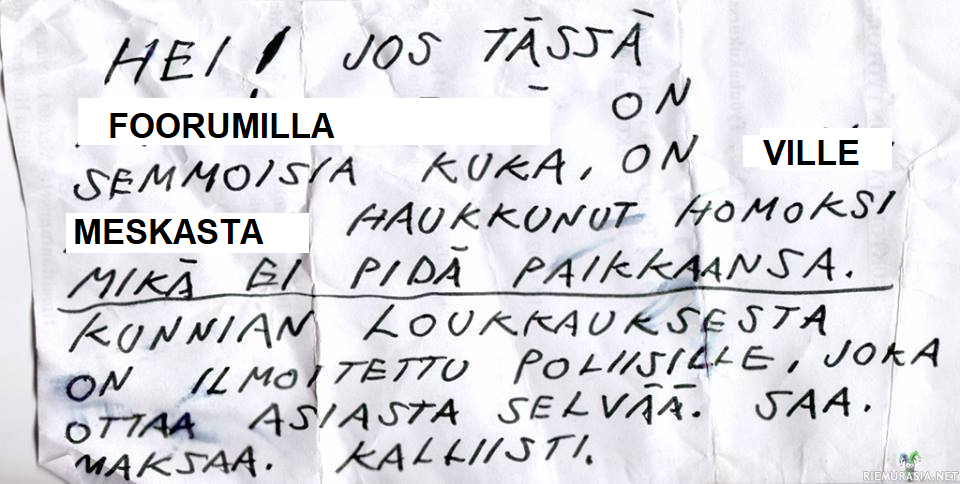 HEI! JOS TÄSSÄ
FOORUMILLA ON
SEMMOISIA KUKA, ON VILLE
MESKASTA HAUKKUNUT HOMOKSI
MIKÄ EI PIDÄ PAIKKAANSA.
KUNNIAN LOUKKAUKSESTA
ON ILMOITETTU POLIISILLE, JOKA
OTTAA ASIASTA SELVÄÄ. SAA.
MAKSAA. KALLIISTI.
RIEMURASIA.NET